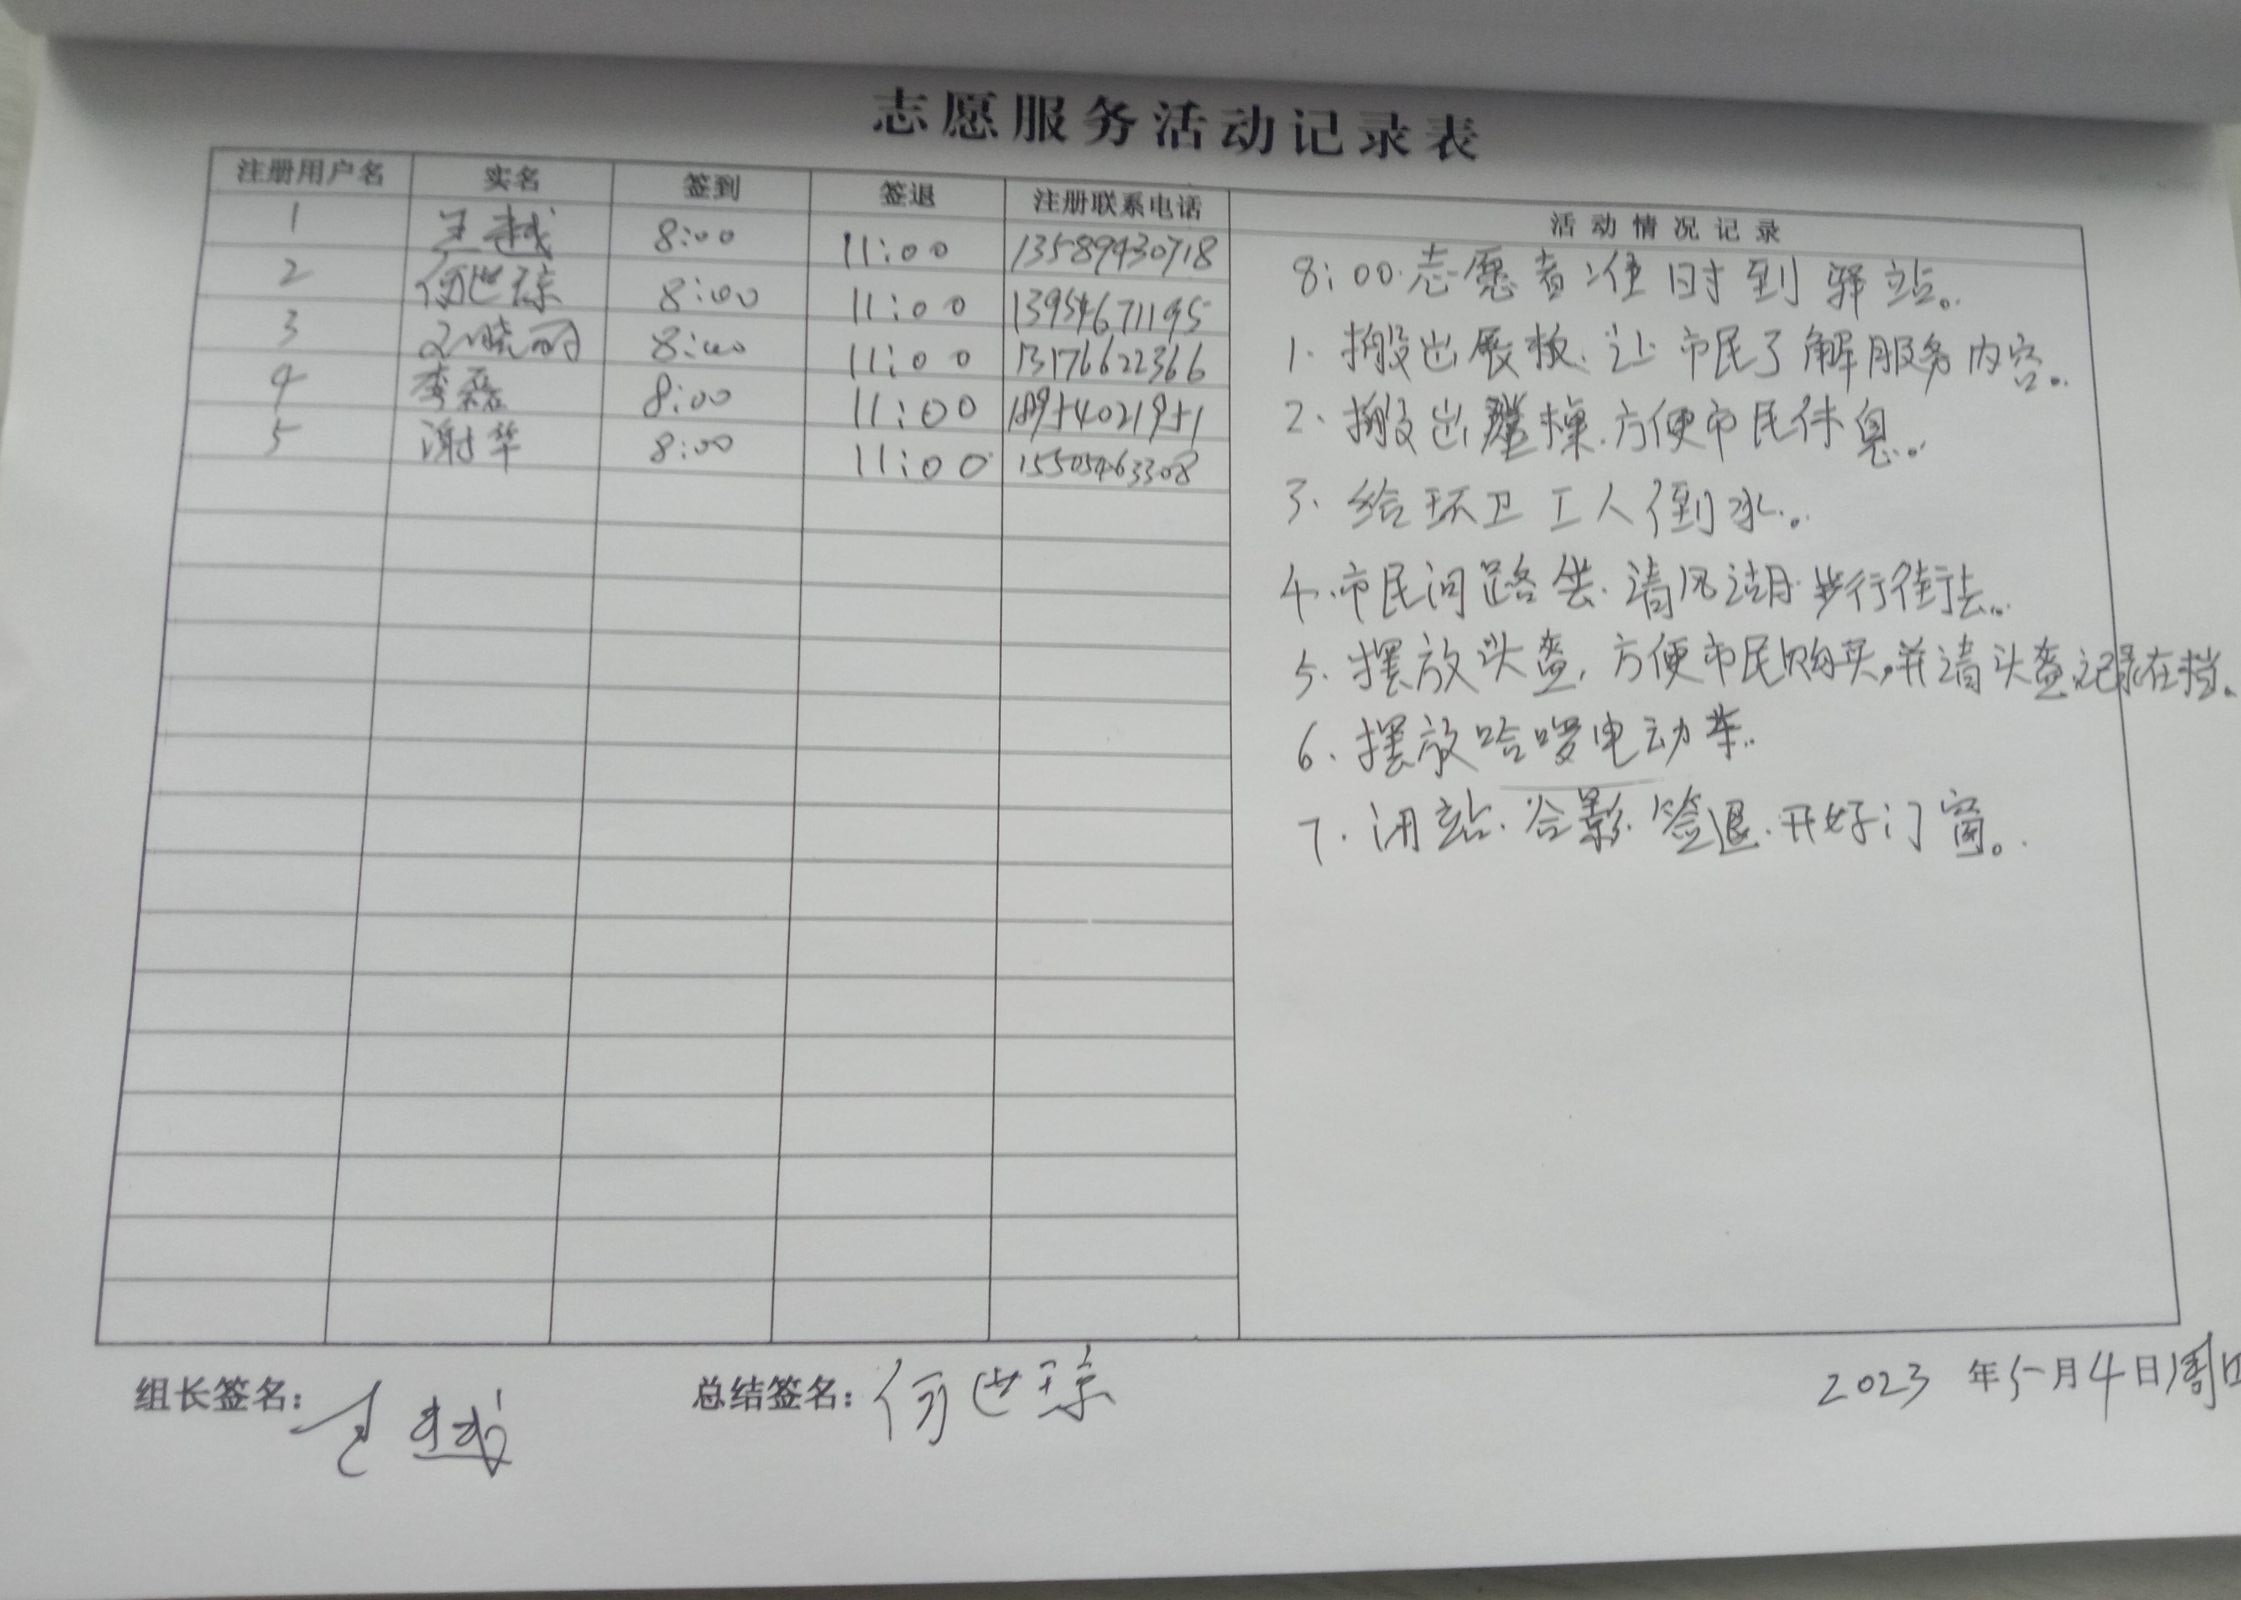 志愿服务活动记录表
注册用户名 实名 签到 签退 注册联系电话 活动情况记录
1 王越 8:00 11:00 13589930718
2 何世琼 8:00 11:00 13954671195
3 晓丽 8:00 11:00 13176622366
4 李磊 8:00 11:00
5 谢华 8:00 11:00 15505463308
8:00.志愿者准时到驿站。
1. 搬出展板.让市民了解服务内容。
2. 搬出桌.方便市民休息。
3. 给环卫工人倒水。
4.市民问路.清风湖.步行街
5. 摆放头盔,方便市民购买,并请头盔记录在档。
6. 摆放哈啰电动车.
7. 闭站.合影.签退.开好门窗。
组长签名: 王越 总结签名: 何世琼 2023 年5月4日周四